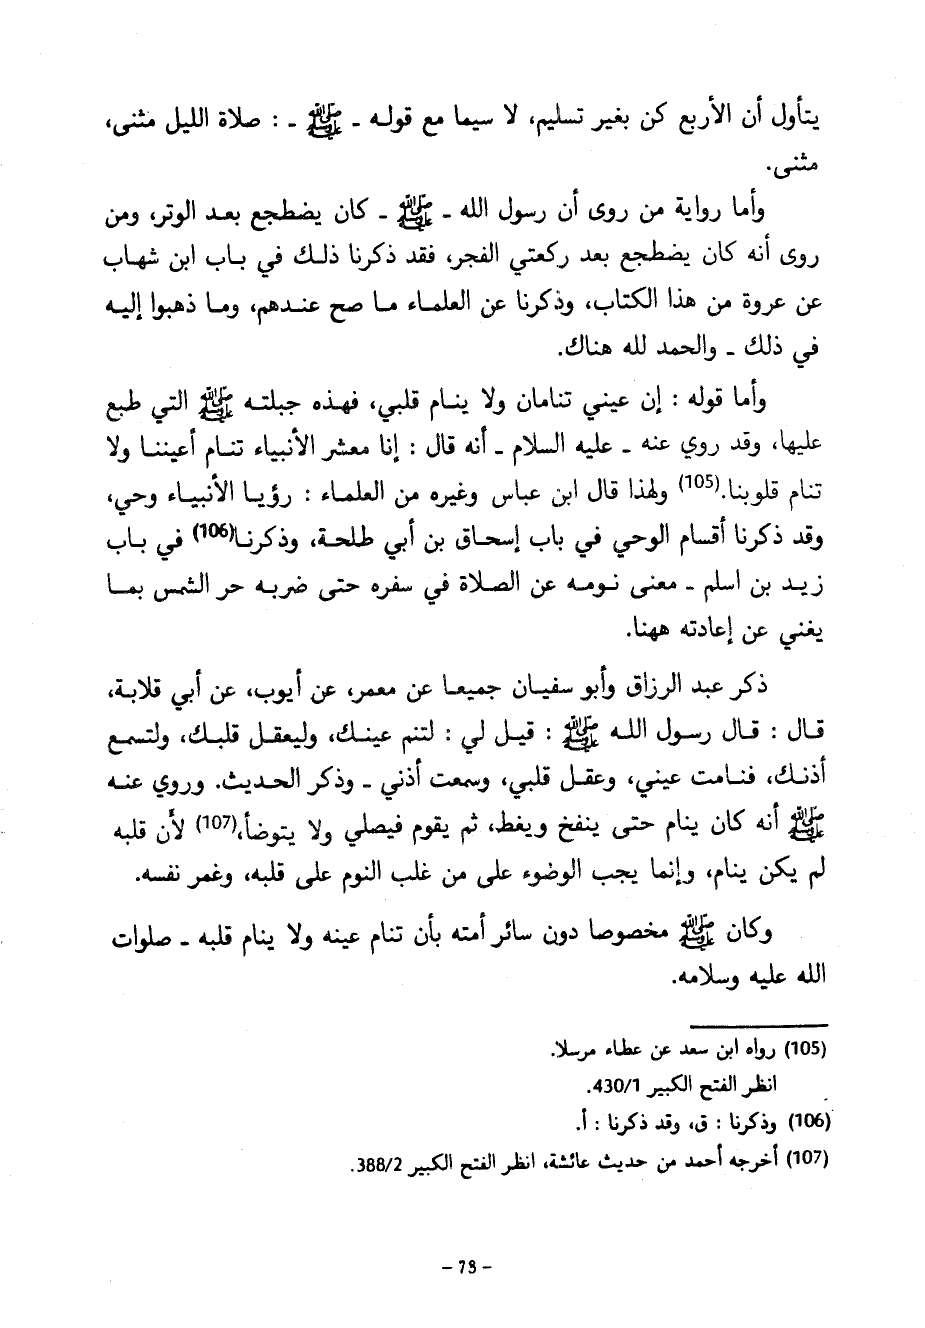 يتأول أن الأربع كن بغير تسليم، لا سيما مع قوله ـ ﷺ ـ : صلاة الليل مثنى،
مثنى.
وأما رواية من روى أن رسول الله ـ ﷺ ـ كان يضطجع بعد الوتر، ومن
روى أنه كان يضطجع بعد ركعتي الفجر، فقد ذكرنا ذلك في باب ابن شهاب
عن عروة من هذا الكتاب، وذكرنا عن العلماء ما صح عندهم، وما ذهبوا إليه
في ذلك ـ والحمد لله هناك.
وأما قوله : إن عيني تنامان ولا ينام قلبي، فهذه جبلته ﷺ التي طبع
عليها، وقد روي عنه ـ عليه السلام ـ أنه قال : إنا معشر الأنبياء تنام أعيننا ولا
تنام قلوبنا.(105) ولهذا قال ابن عباس وغيره من العلماء : رؤيا الأنبياء وحي،
وقد ذكرنا أقسام الوحي في باب إسحاق بن أبي طلحة، وذكرنا(106) في باب
زيد بن اسلم ـ معنى نومه عن الصلاة في سفره حتى ضربه حر الشمس بما
يغني عن إعادته ههنا.
ذكر عبد الرزاق وأبو سفيان جميعا عن معمر، عن أيوب، عن أبي قلابة،
قال : قال رسول الله ﷺ : قيل لي : لتنم عينك، وليعقل قلبك، ولتسمع
أذنك، فنامت عيني، وعقل قلبي، وسمعت أذني ـ وذكر الحديث. وروي عنه
ﷺ أنه كان ينام حتى ينفخ ويغط، ثم يقوم فيصلي ولا يتوضأ،(107) لأن قلبه
لم يكن ينام، وإنما يجب الوضوء على من غلب النوم على قلبه، وغمر نفسه.
وكان ﷺ مخصوصا دون سائر أمته بأن تنام عينه ولا ينام قلبه ـ صلوات
الله عليه وسلامه.
(105) رواه ابن سعد عن عطاء مرسلا.
انظر الفتح الكبير 430/1.
(106) وذكرنا : ق، وقد ذكرنا : أ.
(107) أخرجه أحمد من حديث عائشة، انظر الفتح الكبير 388/2.
– 73 –